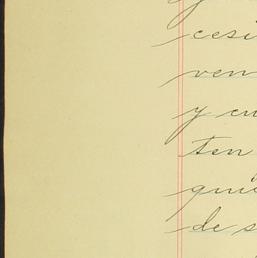 cesi
ven
y cu
ten
qui
de s